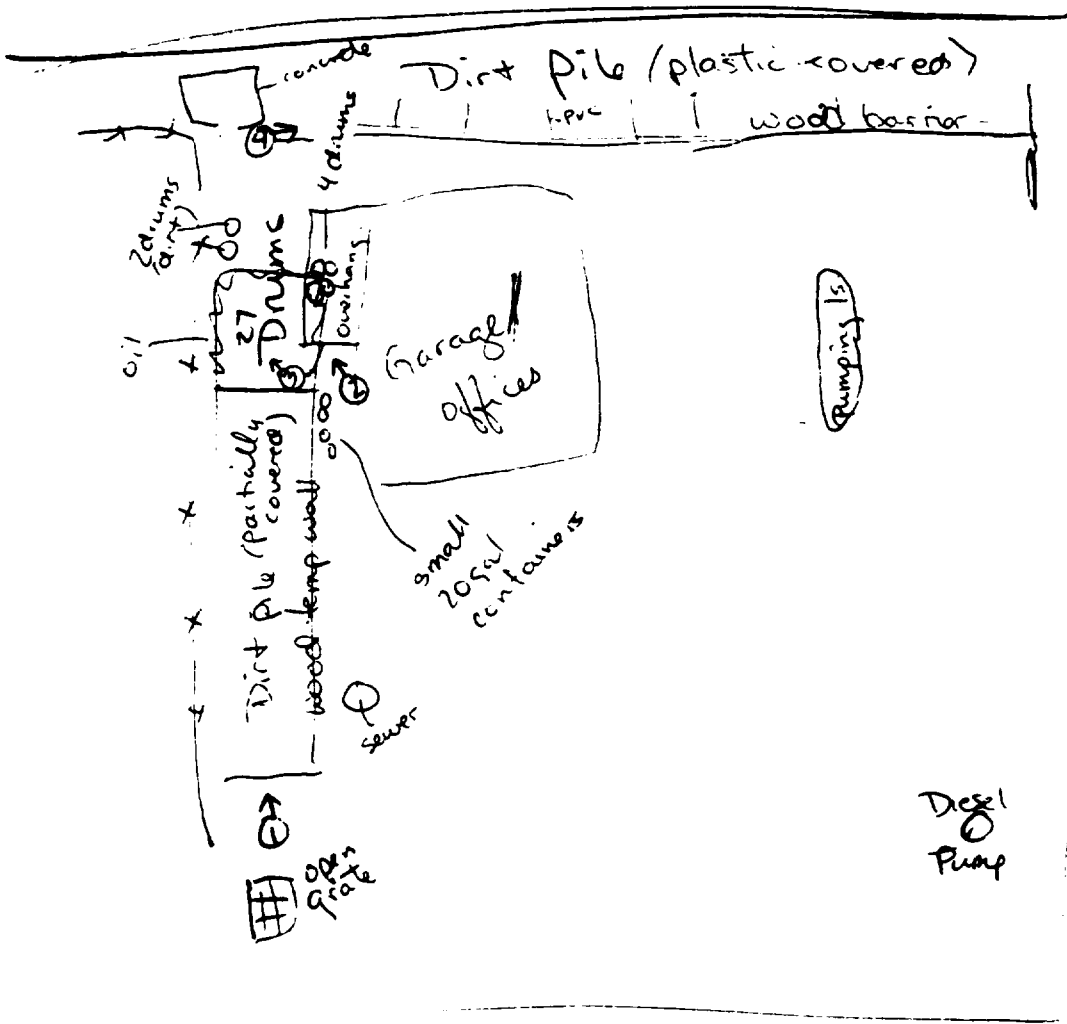 concrete
Dirt Pile (plastic covered)
wood barrier
4 drums
2 drums
(dirt)
27
Drums
overhang
oil
Garage
offices
Pumping Is
4
3
2
Dirt pile (partially
covered)
wood temp wall
small
20 gal
containers
sewer
1
open
grate
Diesel
Pump